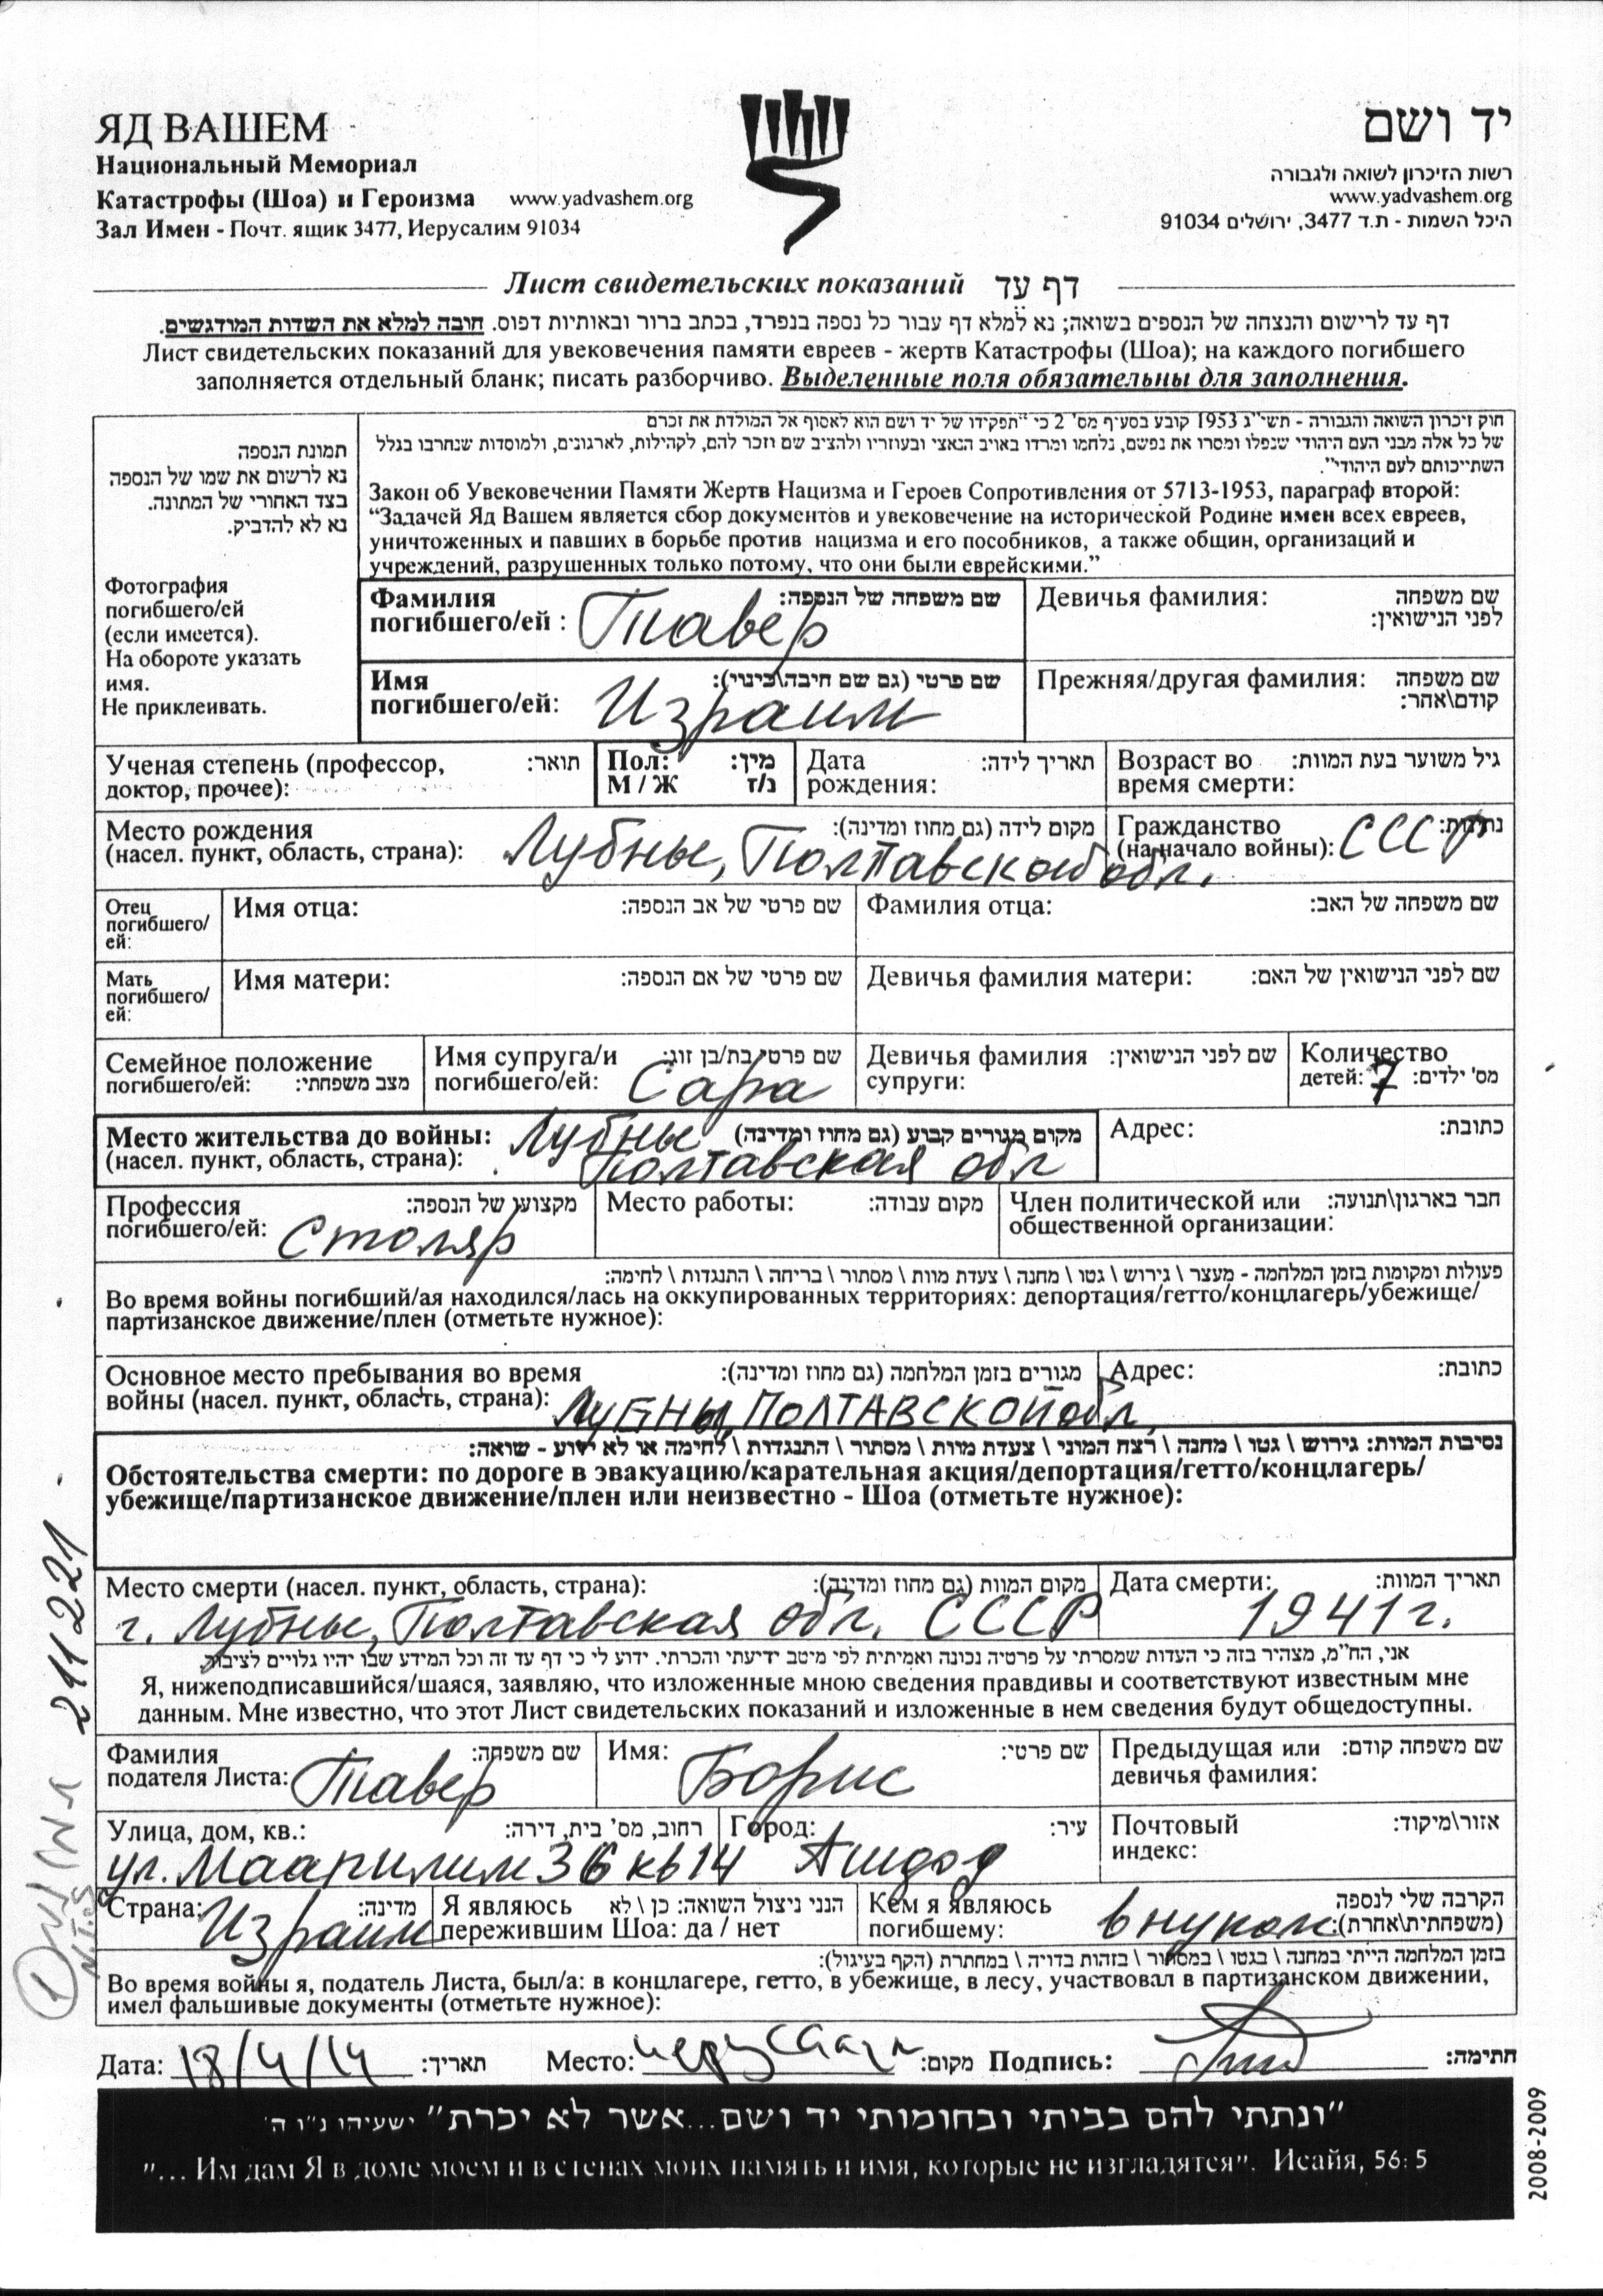 ЯД ВАШЕМ
Национальный Мемориал
Катастрофы (Шоа) и Героизма www.yadvashem.org
Зал Имен - Почт. ящик 3477, Иерусалим 91034
יד ושם
רשות הזיכרון לשואה ולגבורה
www.yadvashem.org
היכל השמות - ת.ד 3477, ירושלים 91034
Лист свидетельских показаний דף עד
דף עד לרישום והנצחה של הנספים בשואה; נא למלא דף עבור כל נספה בנפרד, בכתב ברור ובאותיות דפוס. חובה למלא את השדות המודגשים.
Лист свидетельских показаний для увековечения памяти евреев - жертв Катастрофы (Шоа); на каждого погибшего
заполняется отдельный бланк; писать разборчиво. Выделенные поля обязательны для заполнения.
תמונת הנספה
נא לרשום את שמו של הנספה
בצד האחורי של המתונה.
נא לא להדביק.
Фотография
погибшего/ей
(если имеется).
На обороте указать
имя.
Не приклеивать.
חוק זיכרון השואה והגבורה - תשי"ג 1953 קובע בסעיף מס' 2 כי "תפקידו של יד ושם הוא לאסוף אל המולדת את זכרם
של כל אלה מבני העם היהודי שנפלו ומסרו את נפשם, נלחמו ומרדו באויב הנאצי ובעוזריו ולהציב שם וזכר להם, לקהילות, לארגונים, ולמוסדות שנחרבו בגלל
השתייכותם לעם היהודי".
Закон об Увековечении Памяти Жертв Нацизма и Героев Сопротивления от 5713-1953, параграф второй:
“Задачей Яд Вашем является сбор документов и увековечение на исторической Родине имен всех евреев,
уничтоженных и павших в борьбе против нацизма и его пособников, а также общин, организаций и
учреждений, разрушенных только потому, что они были еврейскими.”
Фамилия שם משפחה של הנספה:
погибшего/ей : Тавер
Девичья фамилия: שם משפחה
לפני הנישואין:
Имя שם פרטי (גם שם חיבה\כינוי):
погибшего/ей: Израиль
Прежняя/другая фамилия: שם משפחה
קודם\אחר:
Ученая степень (профессор, תואר:
доктор, прочее):
Пол: מין:
М / Ж ז/נ
Дата תאריך לידה:
рождения:
Возраст во גיל משוער בעת המוות:
время смерти:
Место рождения מקום לידה (גם מחוז ומדינה):
(насел. пункт, область, страна): Лубны, Полтавской обл.
Гражданство נתינות:
(на начало войны): СССР
Отец
погибшего/
ей:
Имя отца: שם פרטי של אב הנספה:
Фамилия отца: שם משפחה של האב:
Мать
погибшего/
ей:
Имя матери: שם פרטי של אם הנספה:
Девичья фамилия матери: שם לפני הנישואין של האם:
Семейное положение
погибшего/ей: מצב משפחתי:
Имя супруга/и שם פרטי בת/בן זוג:
погибшего/ей: Сара
Девичья фамилия שם לפני הנישואין:
супруги:
Количество
детей: 7 מס' ילדים:
Место жительства до войны: Лубны מקום מגורים קבוע (גם מחוז ומדינה)
(насел. пункт, область, страна): Полтавская обл
Адрес: כתובת:
Профессия מקצוען של הנספה:
погибшего/ей: Столяр
Место работы: מקום עבודה:
Член политической или חבר בארגון\תנועה:
общественной организации:
פעולות ומקומות בזמן המלחמה - מעצר \ גירוש \ גטו \ מחנה \ צעדת מוות \ מסתור \ בריחה \ התנגדות \ לחימה:
Во время войны погибший/ая находился/лась на оккупированных территориях: депортация/гетто/концлагерь/убежище/
партизанское движение/плен (отметьте нужное):
Основное место пребывания во время מגורים בזמן המלחמה (גם מחוז ומדינה):
войны (насел. пункт, область, страна): ЛУБНЫ, ПОЛТАВСКОЙ обл,
Адрес: כתובת:
נסיבות המוות: גירוש \ גטו \ מחנה \ רצח המוני \ צעדת מוות \ מסתור \ התנגדות \ לחימה או לא ידוע - שואה:
Обстоятельства смерти: по дороге в эвакуацию/карательная акция/депортация/гетто/концлагерь/
убежище/партизанское движение/плен или неизвестно - Шоа (отметьте нужное):
Место смерти (насел. пункт, область, страна): מקום המוות (גם מחוז ומדינה):
г. Лубны, Полтавская обл. СССР
Дата смерти: תאריך המוות:
1941г.
אני, הח"מ, מצהיר בזה כי העדות שמסרתי על פרטיה נכונה ואמיתית לפי מיטב ידיעתי והכרתי. ידוע לי כי דף עד זה וכל המידע שבו יהיו גלויים לציבור.
Я, нижеподписавшийся/шаяся, заявляю, что изложенные мною сведения правдивы и соответствуют известным мне
данным. Мне известно, что этот Лист свидетельских показаний и изложенные в нем сведения будут общедоступны.
Фамилия שם משפחה:
подателя Листа: Тавер
Имя: Борис שם פרטי:
Предыдущая или שם משפחה קודם:
девичья фамилия:
Улица, дом, кв.: רחוב, מס' בית, דירה:
ул. Маапилим 36 кв 14
Город: עיר:
Ашдод
Почтовый אזור\מיקוד:
индекс:
Страна: מדינה:
Израиль
Я являюсь הנני ניצול השואה: כן \ לא
пережившим Шоа: да / нет
Кем я являюсь הקרבה שלי לנספה
погибшему: внуком (משפחתית\אחרת):
בזמן המלחמה הייתי במחנה \ בגטו \ במסתור \ בזהות בדויה \ במחתרת (הקף בעיגול):
Во время войны я, податель Листа, был/а: в концлагере, гетто, в убежище, в лесу, участвовал в партизанском движении,
имел фальшивые документы (отметьте нужное):
Дата: 18/4/14 תאריך: Место: מקום: Подпись: חתימה:
"ונתתי להם בביתי ובחומותי יד ושם...אשר לא יכרת" ישעיהו נ"ו ה'
"... Им дам Я в доме моем и в стенах моих память и имя, которые не изгладятся". Исайя, 56: 5
2008-2009
211221
1